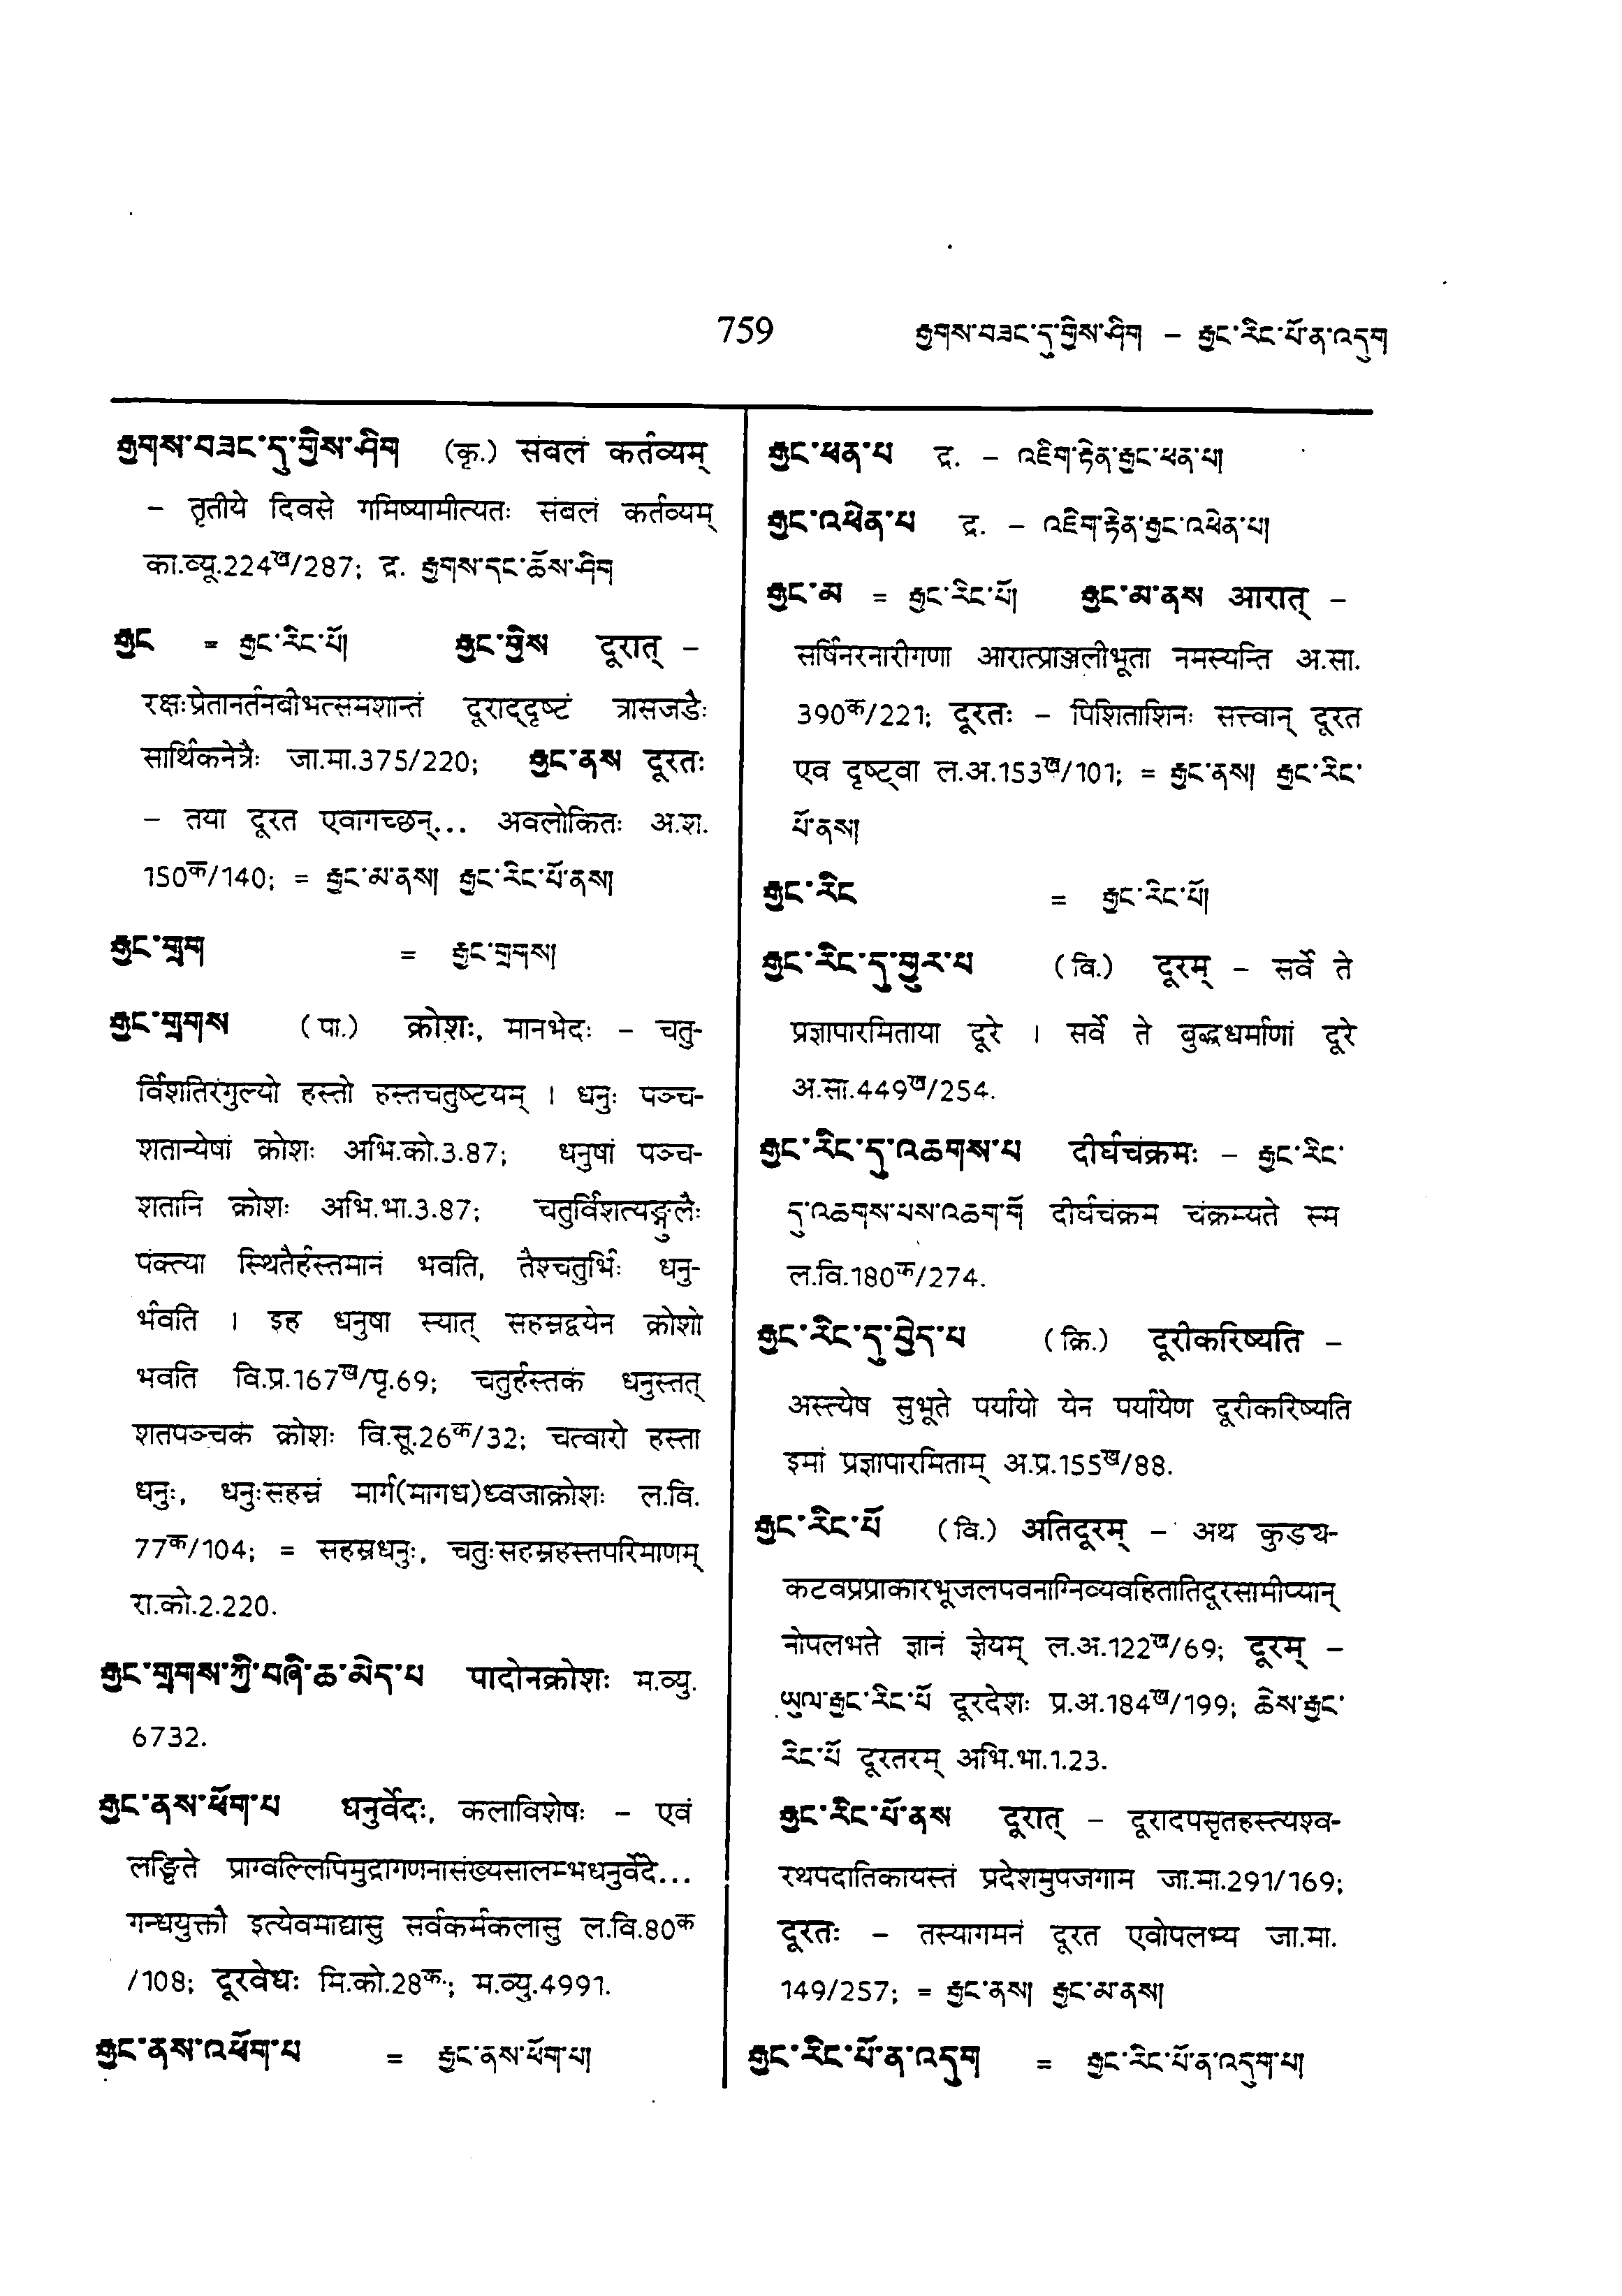 759 རྒྱགས་བཟང་དུ་གྱིས་ཤིག – རྒྱང་རིང་པོ་ན་འདུག
རྒྱགས་བཟང་དུ་གྱིས་ཤིག (कृ.) संबलं कर्तव्यम्
– तृतीये दिवसे गमिष्यामीत्यतः संबलं कर्तव्यम्
का.व्यू.224ख/287; द्र. རྒྱགས་དང་ཆོས་ཤིག
རྒྱང = རྒྱང་རིང་པོ། རྒྱང་གིས दूरात् –
रक्षःप्रेतानर्तनबीभत्समशान्तं दूराद्दृष्टं त्रासजडैः
सार्थिकनेत्रैः जा.मा.375/220; རྒྱང་ནས दूरतः
– तया दूरत एवागच्छन्... अवलोकितः अ.श.
150क/140; = རྒྱང་མ་ནས། རྒྱང་རིང་པོ་ནས།
རྒྱང་གྲག = རྒྱང་གྲགས།
རྒྱང་གྲགས (पा.) क्रोशः, मानभेदः – चतु-
र्विंशतिरंगुल्यो हस्तो हस्तचतुष्टयम् । धनुः पञ्च-
शतान्येषां क्रोशः अभि.को.3.87; धनुषां पञ्च-
शतानि क्रोशः अभि.भा.3.87; चतुर्विंशत्यङ्गुलैः
पंक्त्या स्थितैर्हस्तमानं भवति, तैश्चतुर्भिः धनु-
र्भवति । इह धनुषा स्यात् सहस्रद्वयेन क्रोशो
भवति वि.प्र.167ख/पृ.69; चतुर्हस्तकं धनुस्तत्
शतपञ्चकं क्रोशः वि.सू.26क/32; चत्वारो हस्ता
धनुः, धनुःसहस्रं मार्ग(मागध)ध्वजाक्रोशः ल.वि.
77क/104; = सहस्रधनुः, चतुःसहस्रहस्तपरिमाणम्
रा.को.2.220.
རྒྱང་གྲགས་ཀྱི་བཞི་ཆ་མེད་པ पादोनक्रोशः म.व्यु.
6732.
རྒྱང་ནས་ཕོག་པ धनुर्वेदः, कलाविशेषः – एवं
लङ्घिते प्राग्वल्लिपिमुद्रागणनासंख्यसालम्भधनुर्वेदे...
गन्धयुक्तौ इत्येवमाद्यासु सर्वकर्मकलासु ल.वि.80क
/108; दूरवेधः मि.को.28क; म.व्यु.4991.
རྒྱང་ནས་འཕོག་པ = རྒྱང་ནས་ཕོག་པ།
རྒྱང་ཕན་པ द्र. – འཇིག་རྟེན་རྒྱང་ཕན་པ།
རྒྱང་འཕེན་པ द्र. – འཇིག་རྟེན་རྒྱང་འཕེན་པ།
རྒྱང་མ = རྒྱང་རིང་པོ། རྒྱང་མ་ནས आरात् –
सर्षिनरनारीगणा आरात्प्राञ्जलीभूता नमस्यन्ति अ.सा.
390क/221; दूरतः – पिशिताशिनः सत्त्वान् दूरत
एव दृष्ट्वा ल.अ.153ख/101; = རྒྱང་ནས། རྒྱང་རིང་
པོ་ནས།
རྒྱང་རིང = རྒྱང་རིང་པོ།
རྒྱང་རིང་དུ་གྱུར་པ (वि.) दूरम् – सर्वे ते
प्रज्ञापारमिताया दूरे । सर्वे ते बुद्धधर्माणां दूरे
अ.सा.449ख/254.
རྒྱང་རིང་དུ་འཆགས་པ दीर्घचंक्रमः – རྒྱང་རིང་
དུ་འཆགས་པས་འཆག་གོ दीर्घचंक्रम चंक्रम्यते स्म
ल.वि.180क/274.
རྒྱང་རིང་དུ་བྱེད་པ (क्रि.) दूरीकरिष्यति –
अस्त्येष सुभूते पर्यायो येन पर्यायेण दूरीकरिष्यति
इमां प्रज्ञापारमिताम् अ.प्र.155ख/88.
རྒྱང་རིང་པོ (वि.) अतिदूरम् – अथ कुड्य-
कटवप्रप्राकारभूजलपवनाग्निव्यवहितातिदूरसामीप्यान्
नोपलभते ज्ञानं ज्ञेयम् ल.अ.122ख/69; दूरम् –
ཡུལ་རྒྱང་རིང་པོ दूरदेशः प्र.अ.184ख/199; ཆེས་རྒྱང་
རིང་པོ दूरतरम् अभि.भा.1.23.
རྒྱང་རིང་པོ་ནས दूरात् – दूरादपसृतहस्त्यश्व-
रथपदातिकायस्तं प्रदेशमुपजगाम जा.मा.291/169;
दूरतः – तस्यागमनं दूरत एवोपलभ्य जा.मा.
149/257; = རྒྱང་ནས། རྒྱང་མ་ནས།
རྒྱང་རིང་པོ་ན་འདུག = རྒྱང་རིང་པོ་ན་འདུག་པ།